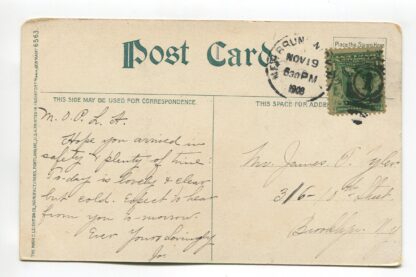 Post Card
Place the Stamp Here
NOV 19
630 PM
1908
THIS SIDE MAY BE USED FOR CORRESPONDENCE.
THIS SPACE FOR ADDRESS
M. O. P. L. A.
Hope you arrived in
safety & plenty of time.
To-day is lovely & clear
but cold. Expect to hear
from you to-morrow.
Ever Yours lovingly
Jo.
James
316-10th Street
Brooklyn N.Y.
6563